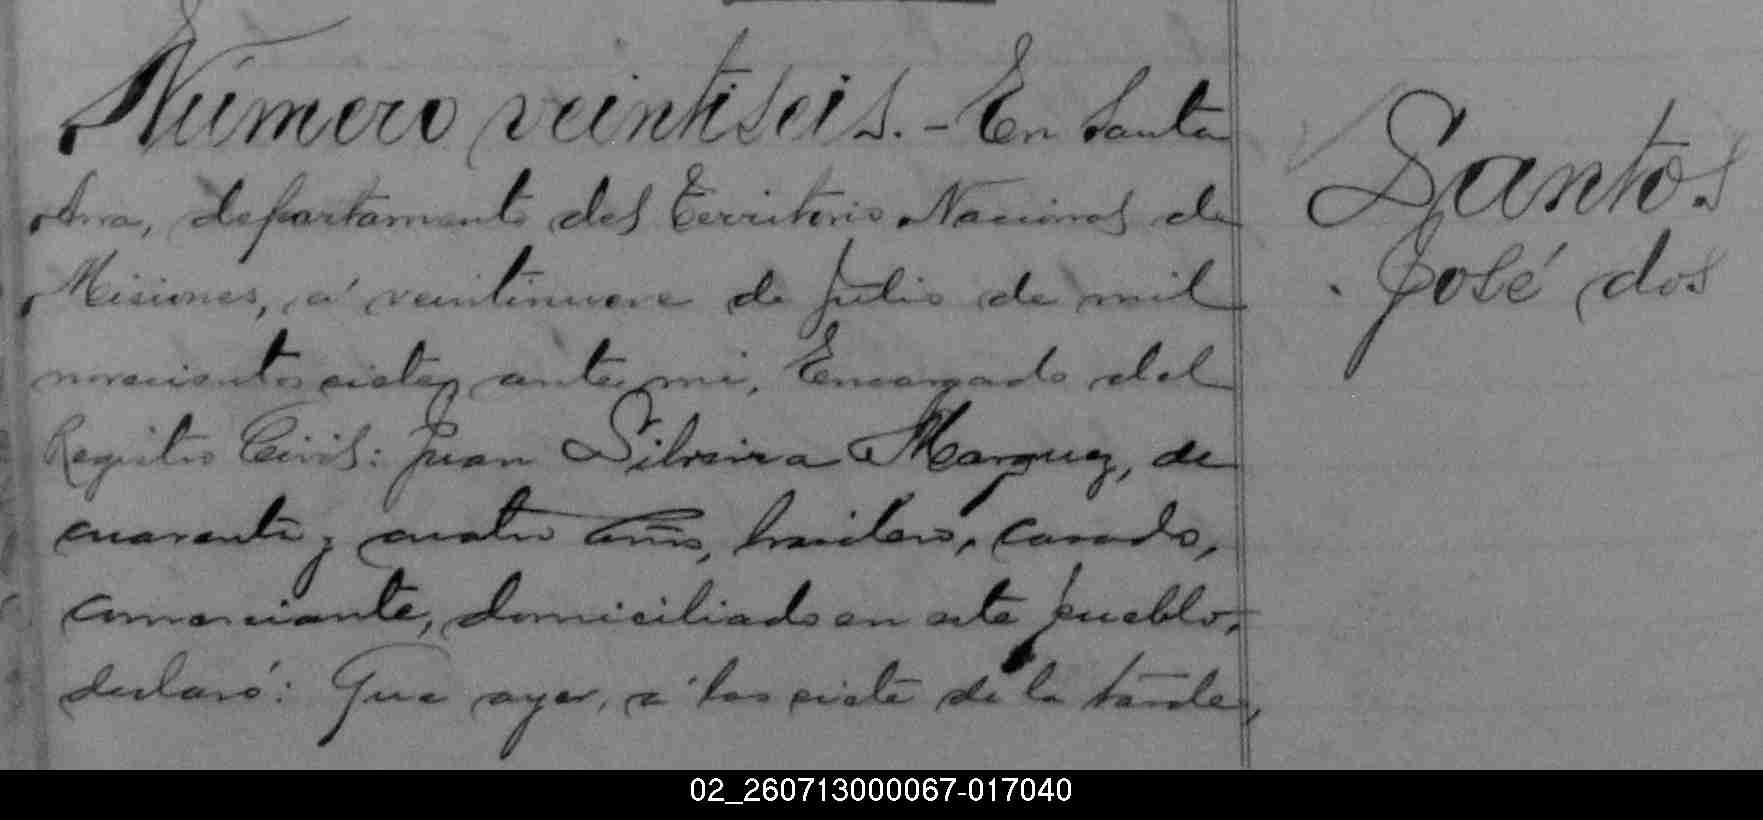 Número veintiseis. - En Santa
Ana, departamento del Territorio Nacional de
Misiones, á veintinueve de Julio de mil
novecientos siete, ante mi, Encargado del
Registro Civil: Juan Silveira Marquez, de
cuarenta y cuatro años, brasilero, casado,
comerciante, domiciliado en este pueblo,
declaró: Que ayer, á las siete de la tarde,
Santos
José dos
02_260713000067-017040